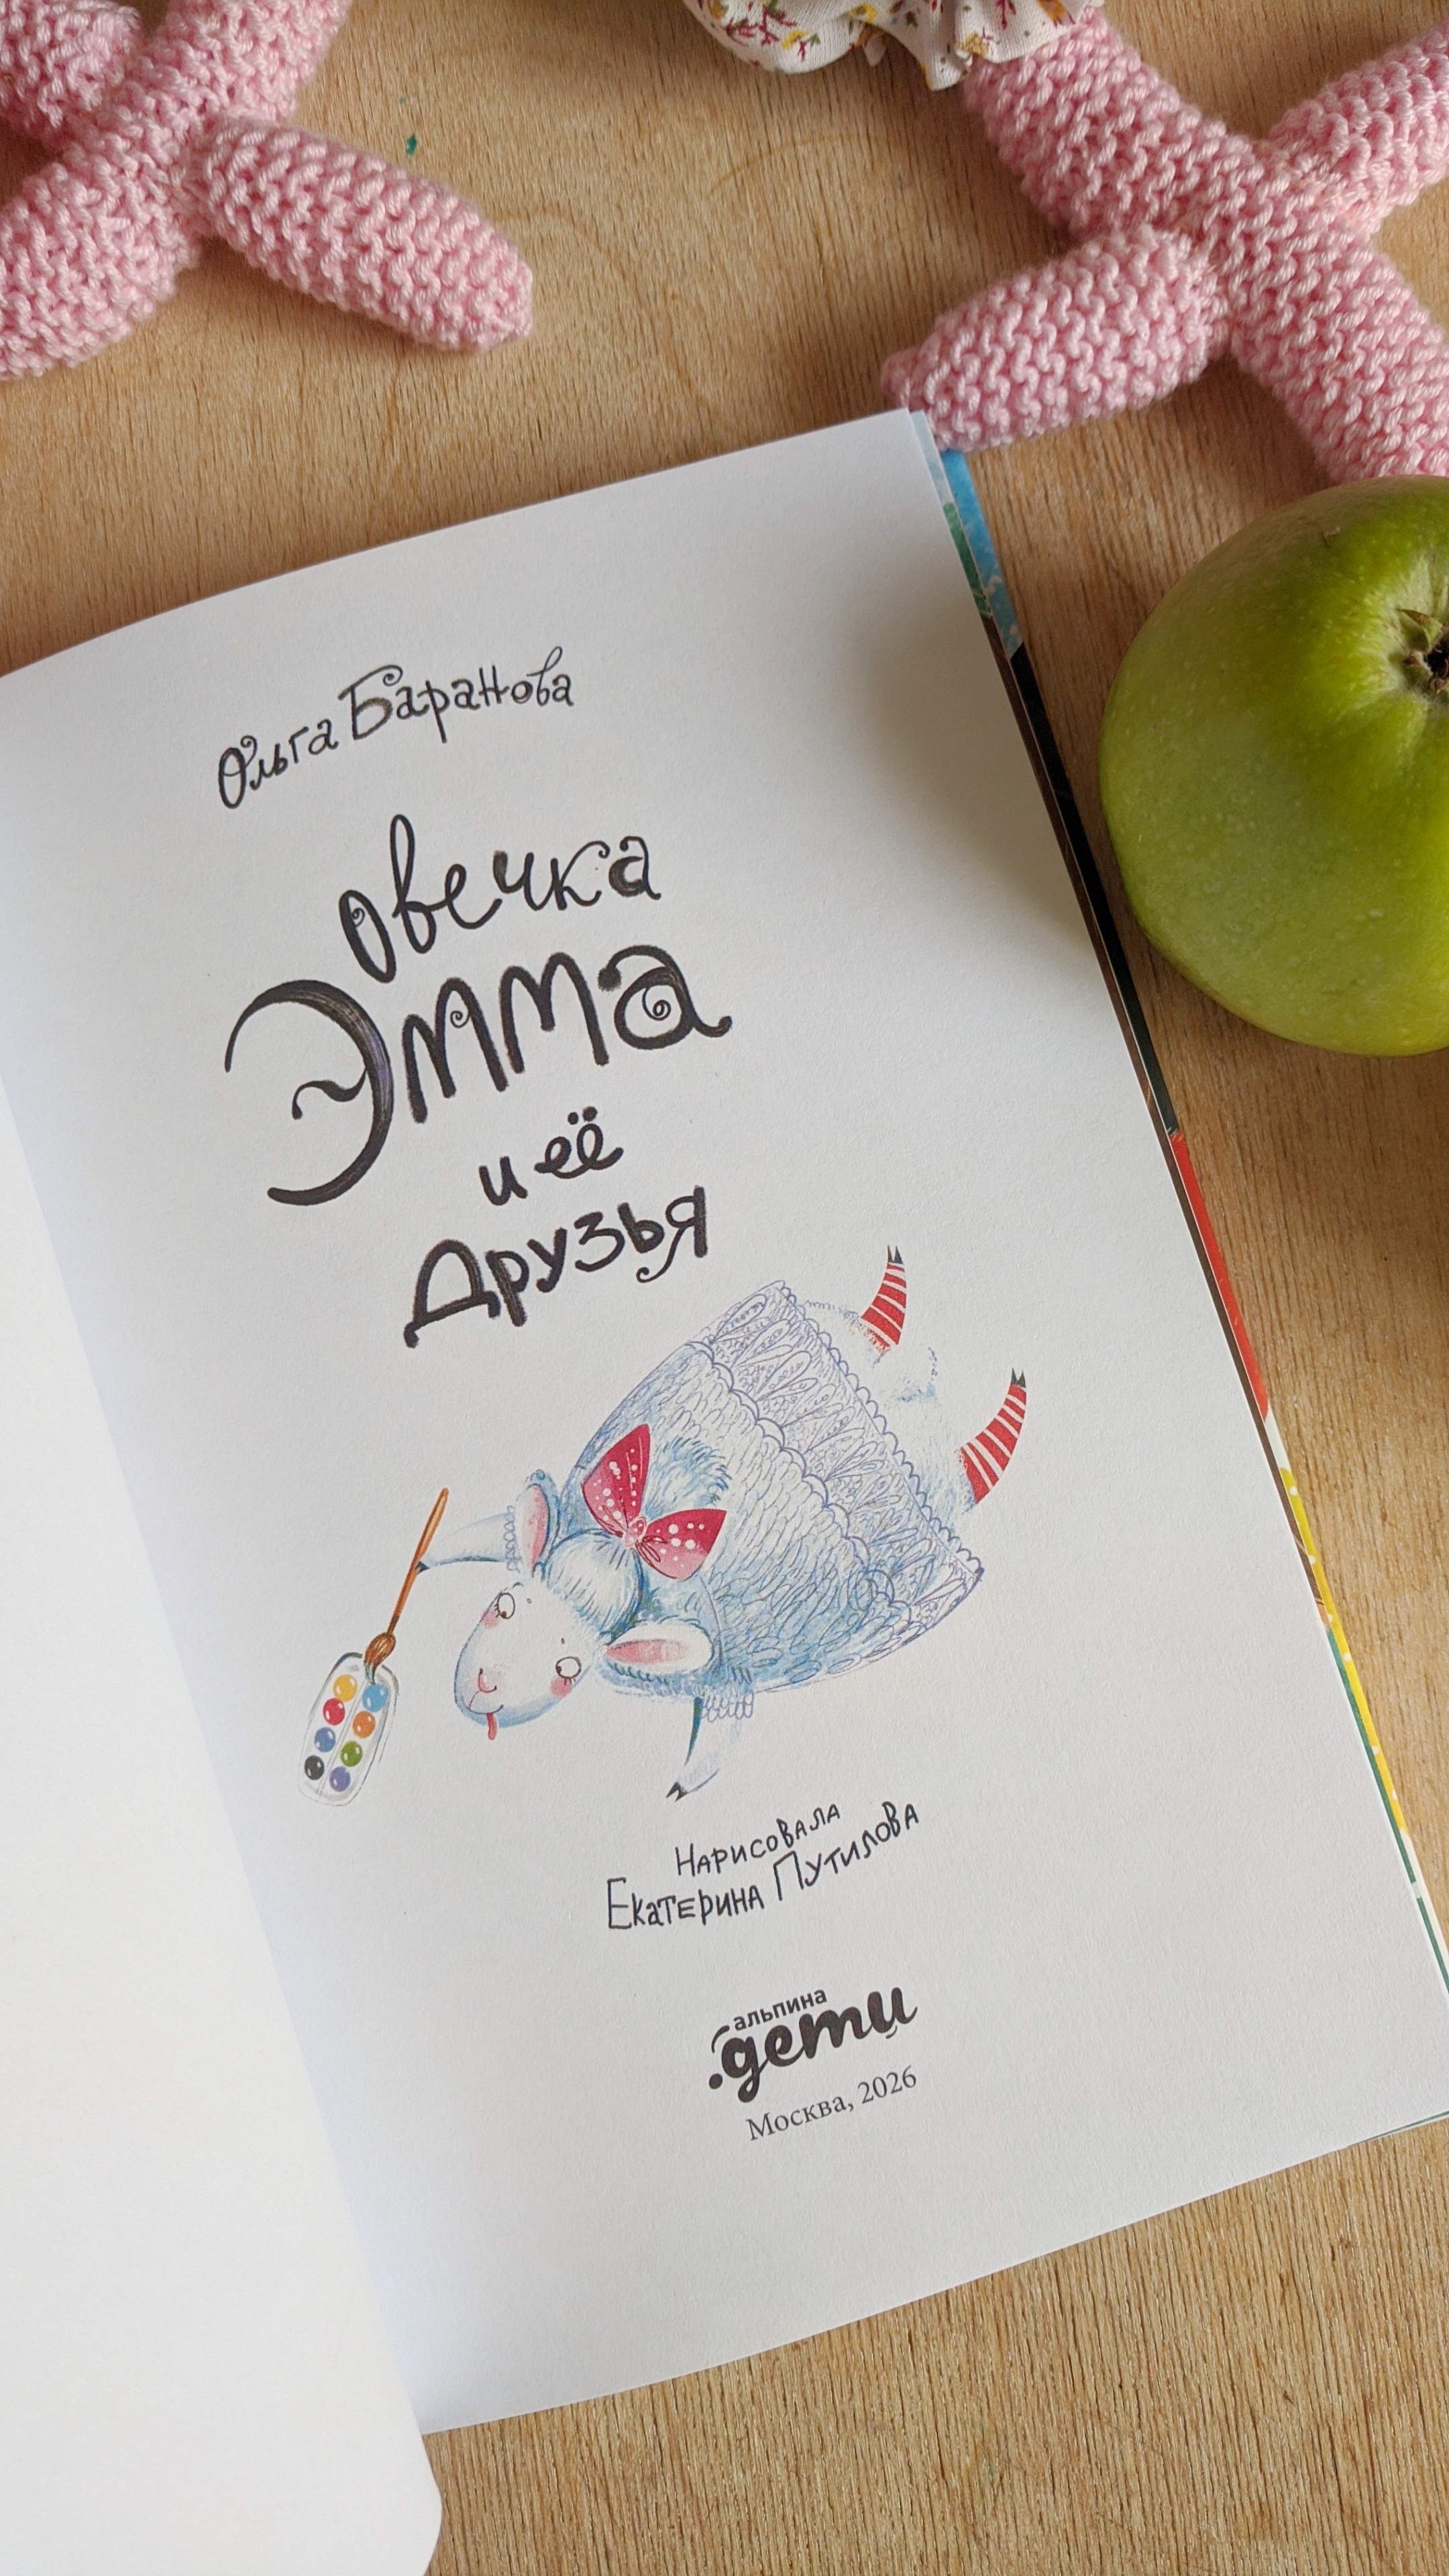 Ольга Баранова
овечка
Эмма
и её
друзья
Нарисовала
Екатерина Путилова
альпина
.дети
Москва, 2026